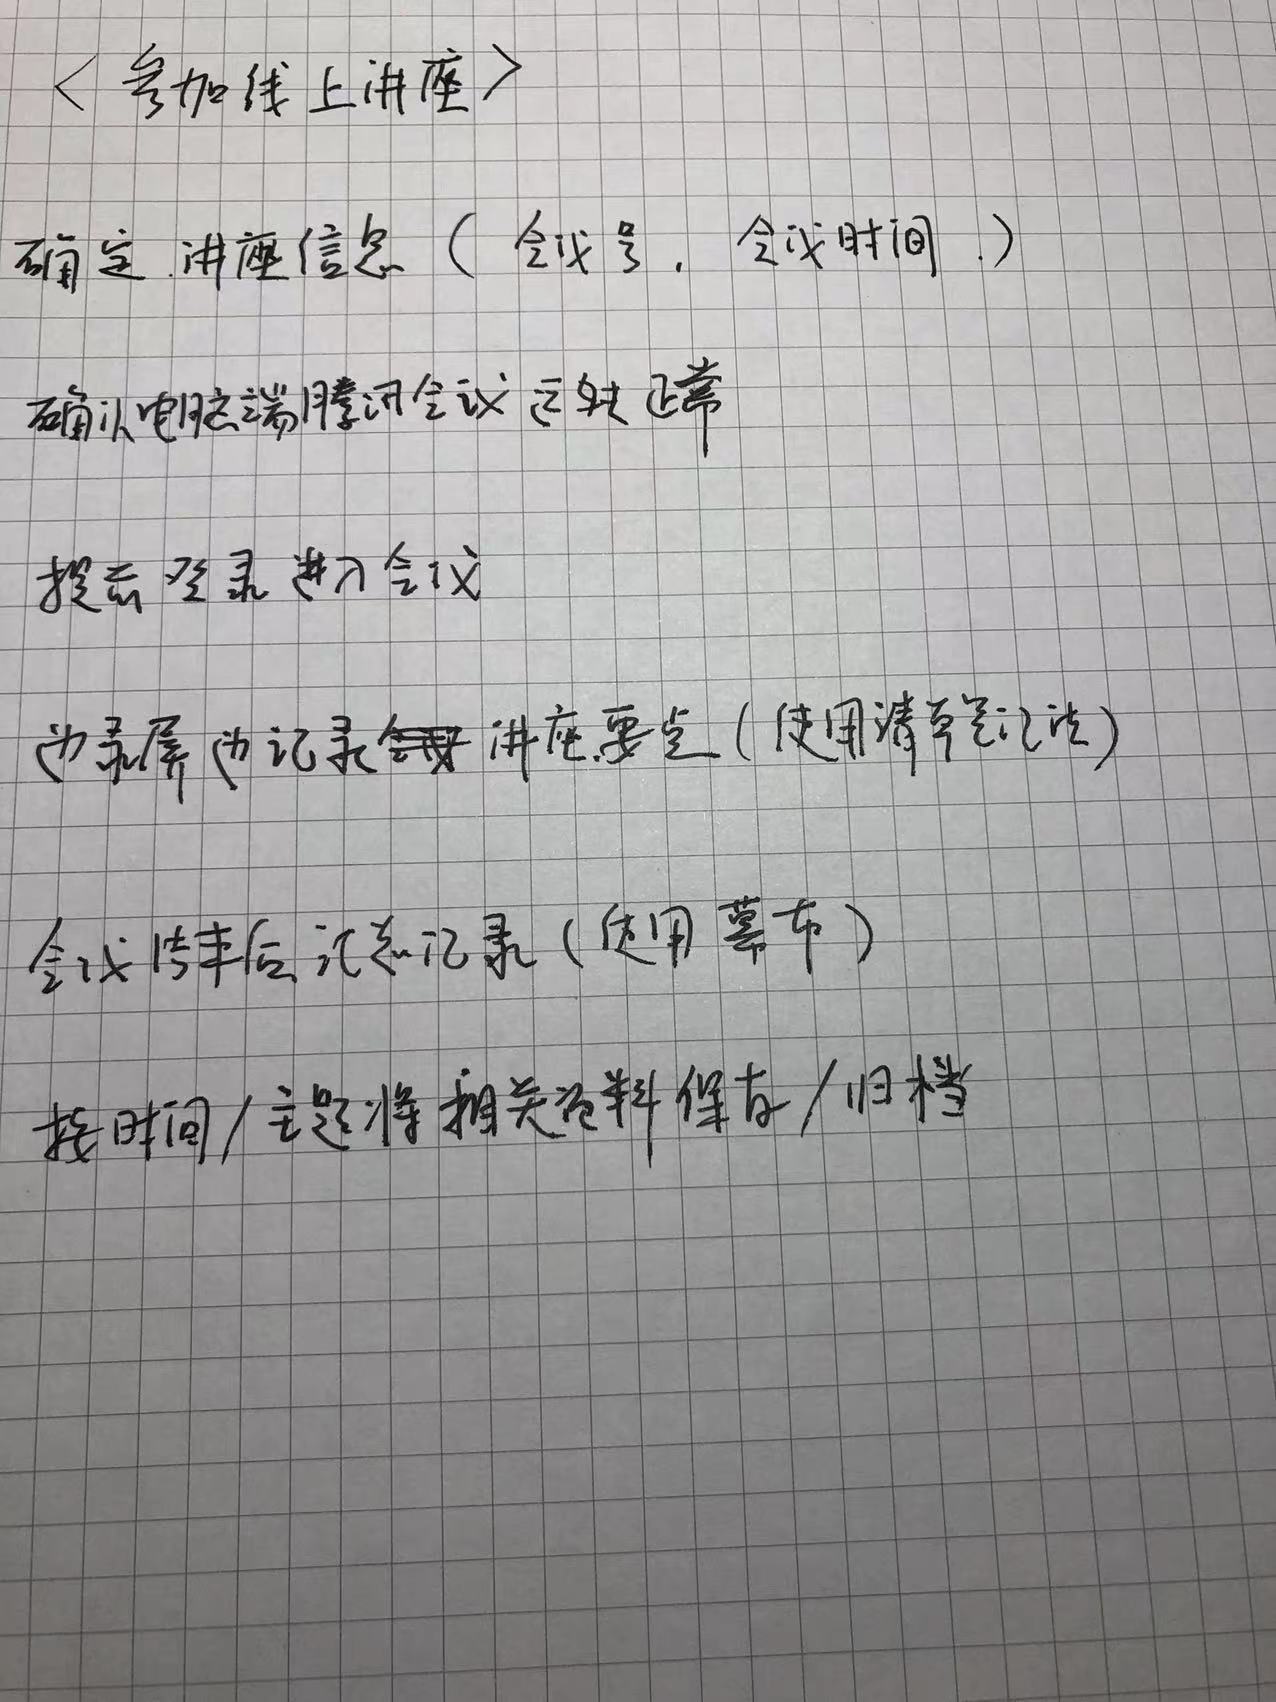 <参加线上讲座>
确定讲座信息（会议号，会议时间）
确认电脑端腾讯会议连接正常
提前登录进入会议
边录屏边记录讲座要点（使用清单笔记法）
会议结束后汇总记录（使用幕布）
按时间/主题将相关资料保存/归档